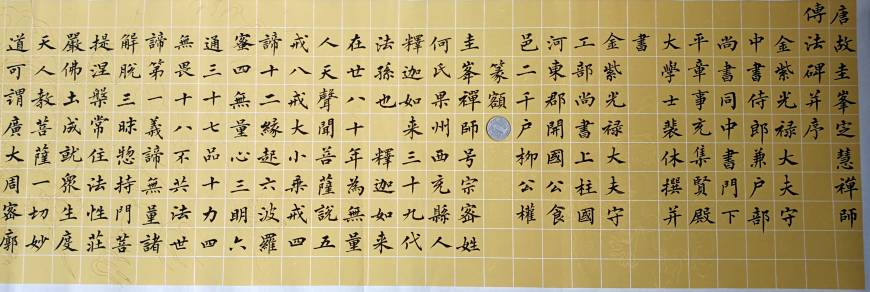 唐故圭峯定慧禪師
傳法碑并序
金紫光禄大夫守
中書侍郎兼户部
尚書同中書門下
平章事充集賢殿
大學士裴休撰并
書
金紫光禄大夫守
工部尚書上柱國
河東郡開國公食
邑二千户柳公權
篆額
圭峯禪師号宗密姓
何氏果州西充縣人
釋迦如来三十九代
法孫也 釋迦如来
在世八十年為無量
人天聲聞菩薩說五
戒八戒大小乘戒四
諦十二緣起六波羅
蜜四無量心三明六
通三十七品十力四
無畏十八不共法世
諦第一義諦無量諸
解脫三昧惣持門菩
提涅槃常住法性莊
嚴佛土成就衆生度
天人教菩薩一切妙
道可謂廣大周密廓